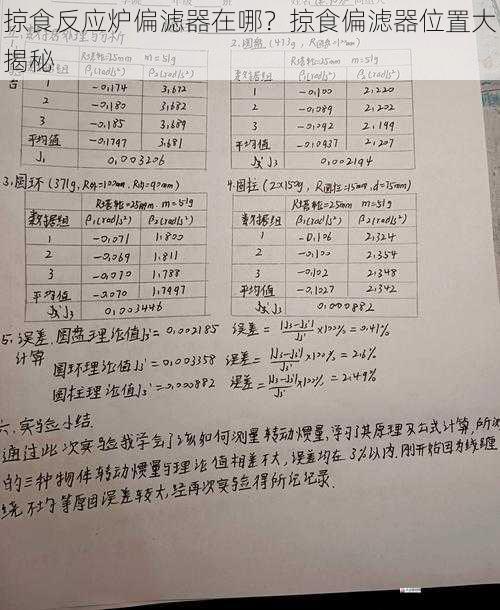 掠食反应炉偏滤器在哪？掠食偏滤器位置大
揭秘
2.圆盘(473g, R圆盘=100mm)
R塔轮=25mm m=51g
β₁(rad/s²) β₂(rad/s²)
1 -0.174 3.672
2 -0.180 3.682
3 -0.185 3.689
平均值 -0.1797 3.681
J₁ 0.003206
R塔轮=25mm m=51g
数据组 β₁(rad/s²) β₂(rad/s²)
1 -0.100 2.220
2 -0.089 2.202
3 -0.092 2.199
平均值 -0.0937 2.207
0.002194
3.圆环(371g, R外=100mm, R内=90mm)
R塔轮=25mm m=51g
数据组 β₁(rad/s²) β₂(rad/s²)
1 -0.071 1.800
2 -0.069 1.811
3 -0.070 1.788
平均值 -0.070 1.7997
0.003446
4.圆柱(2×150g, R圆柱=15mm, d=75mm)
R塔轮=25mm m=51g
数据组 β₁(rad/s²) β₂(rad/s²)
1 -0.106 2.324
2 -0.100 2.354
3 -0.102 2.348
平均值 -0.1027 2.342
0.000882
5.误差 圆盘理论值J₃'=0.002185 误差=|J₃-J₃'|/J₃'×100%=0.41%
计算 圆环理论值J₃'=0.003358 误差=|J₃-J₃'|/J₃'×100%=2.6%
圆柱理论值J₃'=0.000882 误差=|J₃-J₃'|/J₃'×100%=2.49%
六、实验小结
通过此次实验我学会了该如何测量转动惯量,学习了其原理及公式计算,所测
的三种物体转动惯量与理论值相差不大,误差均在3%以内.刚开始因为线缠
绕不均等原因误差较大,经再次实验得所记记录.